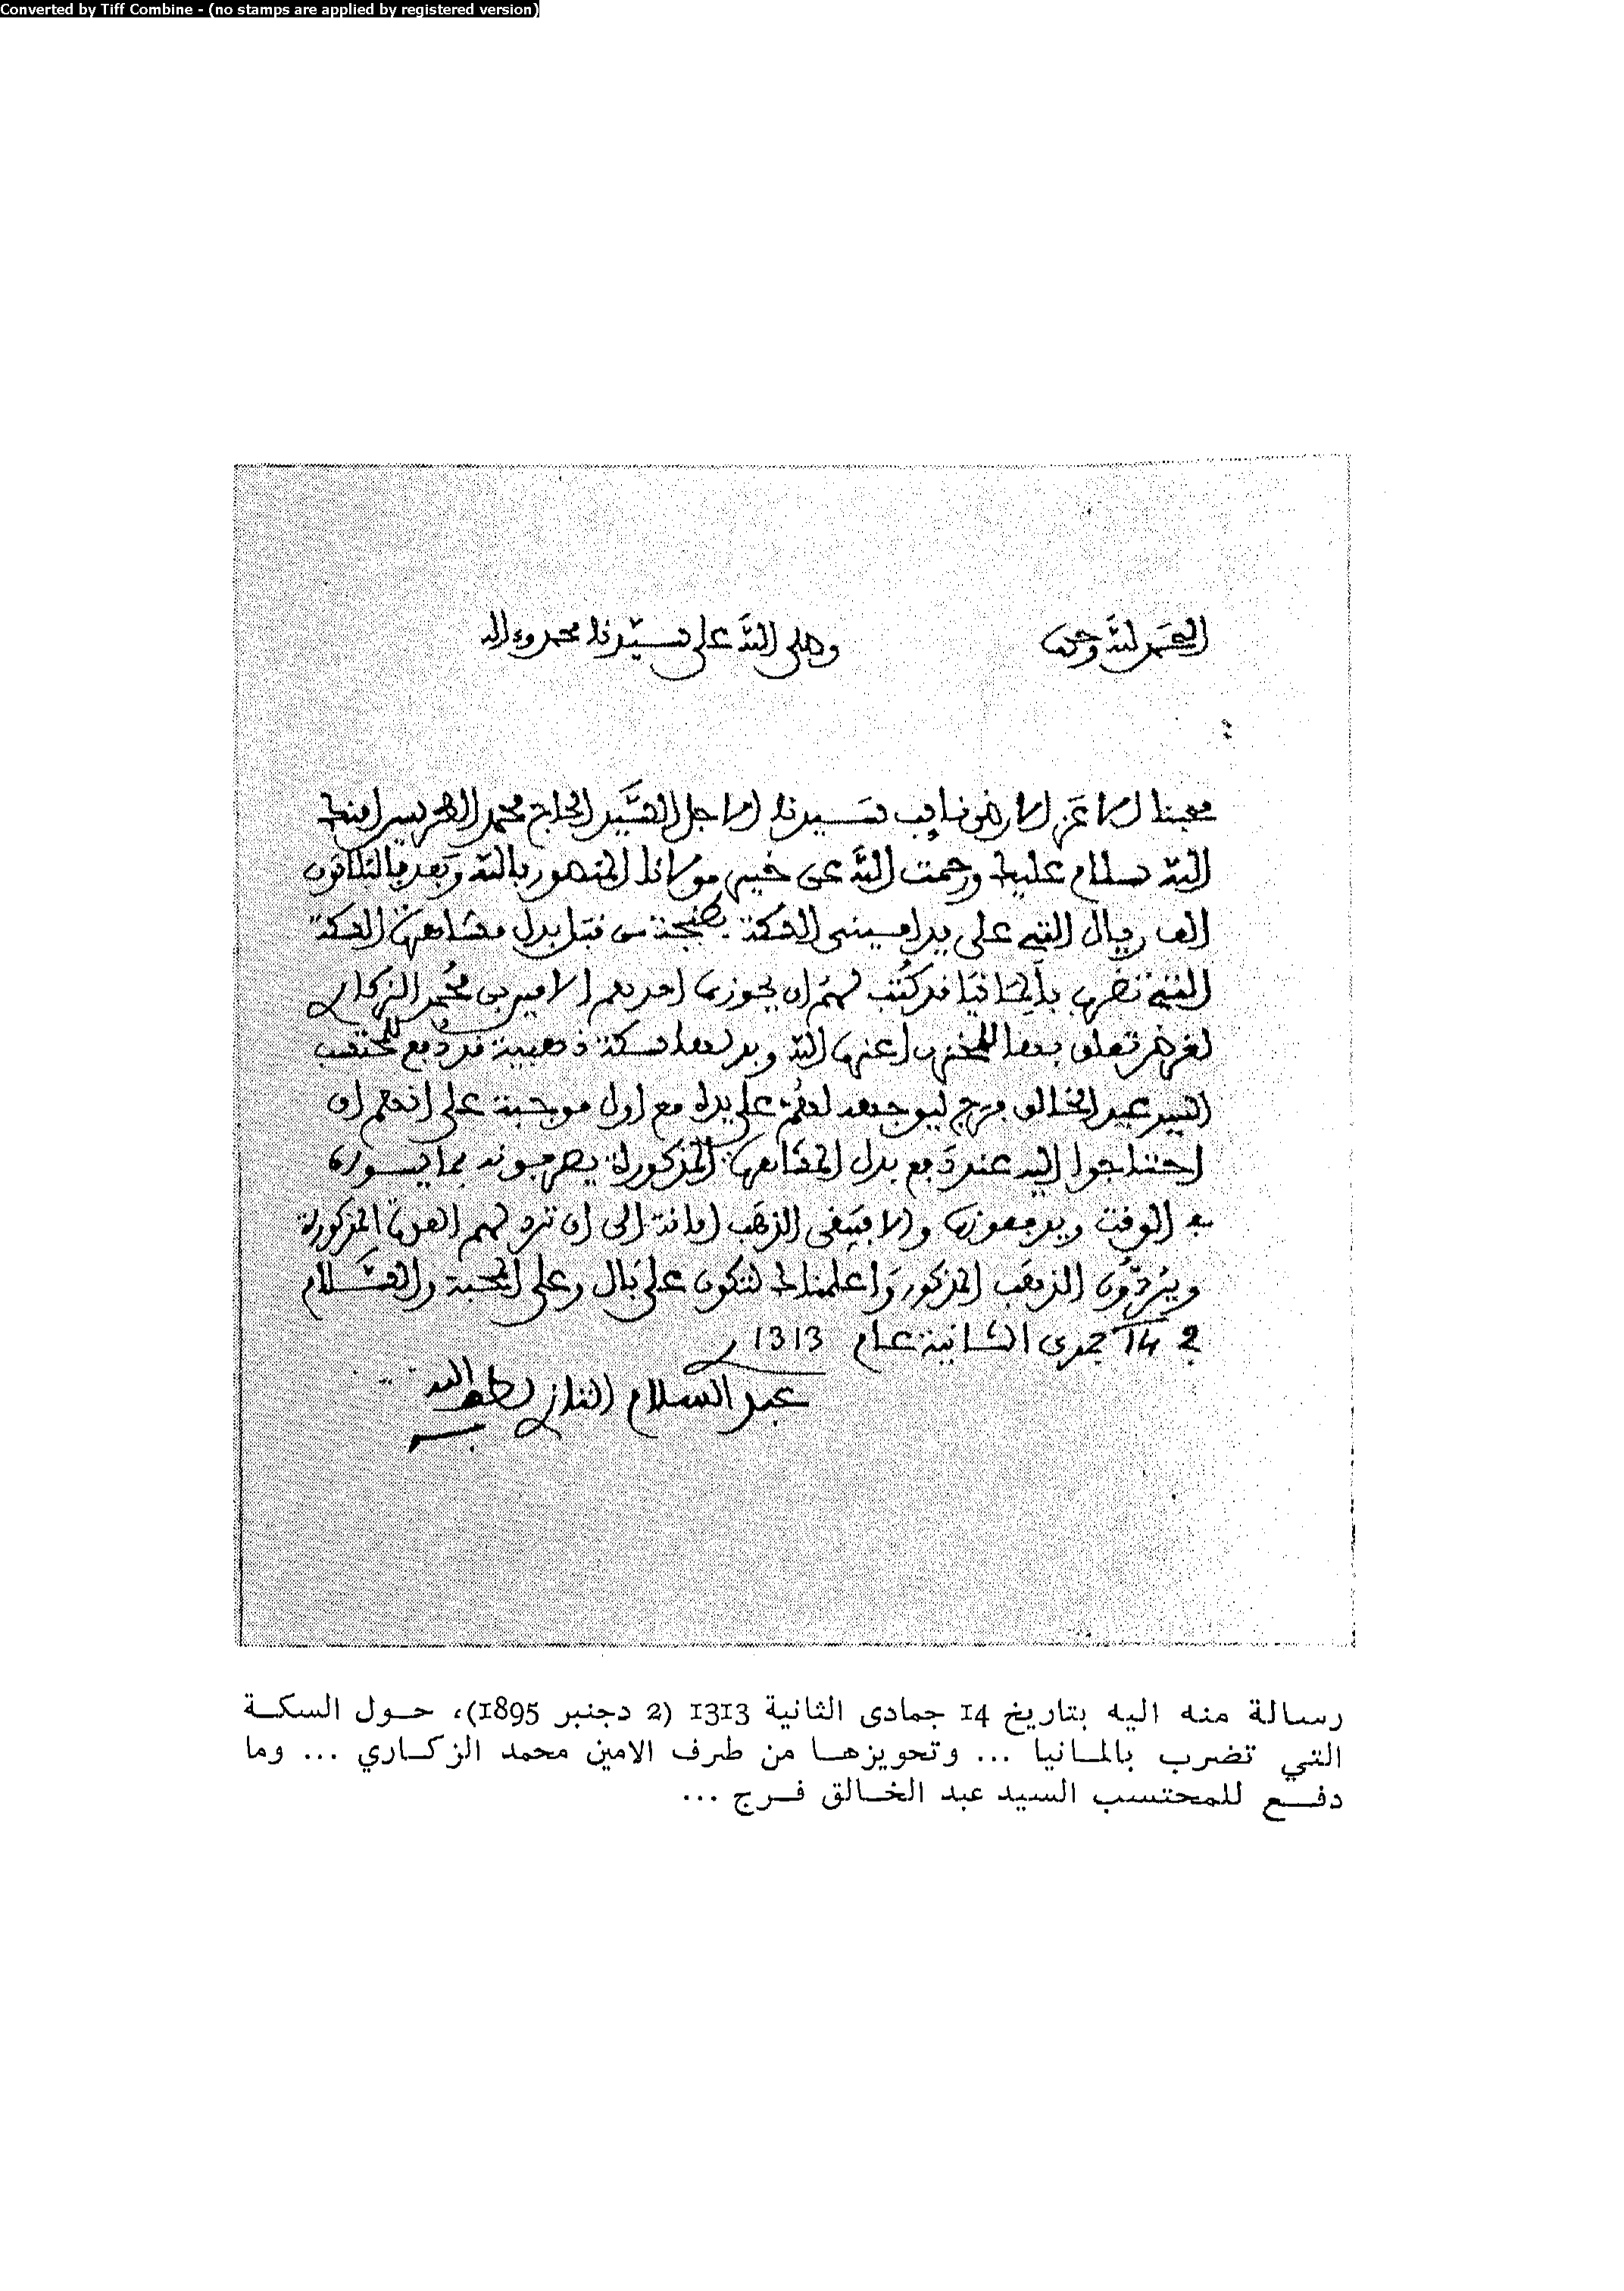 Converted by Tiff Combine - (no stamps are applied by registered version)
الحمد لله وحده
وصلى الله على سيدنا محمد وءاله
محبنا الاعز الارضى نايب سيدنا الاجل السيد الحاج محمد الطريس امنك
الله سلام عليك ورحمت الله عن خير مولانا المنصور بالله وبعد فالثلاثون
الف ريال التي على يد امين السكة بطنجة من قبل بدل مشاهرة السكة
التي تضرب بألمانيا قد كتب لهم ان يحوزها احدهم الامين محمد الزكاري
لغرض تعلق بها للمخزن اعزه الله وبدلها سكة ذهبية قد دفع للمحتسب
السيد عبد الخالق فرج ليوجهه لهم على يدك مع اول موجبة على انهم ان
احتاجوا اليه عند دفع بدل المشاهرة المذكورة يصرفونه بما يسواه
في الوقت ويدفعونه والا فيبقى الذهب امانة الى ان ترد لهم العدة المذكورة
ويردون الذهب المذكور واعلمناك لتكون على بال وعلى المحبة والسلام
في 14 جمدى الثانية عام 1313
عبد السلام التازي لطف الله به
رسالة منه اليه بتاريخ 14 جمادى الثانية 1313 (2 دجنبر 1895)، حول السكة
التي تضرب بالمانيا ... وتحويزها من طرف الامين محمد الزكاري ... وما
دفع للمحتسب السيد عبد الخالق فرج ...